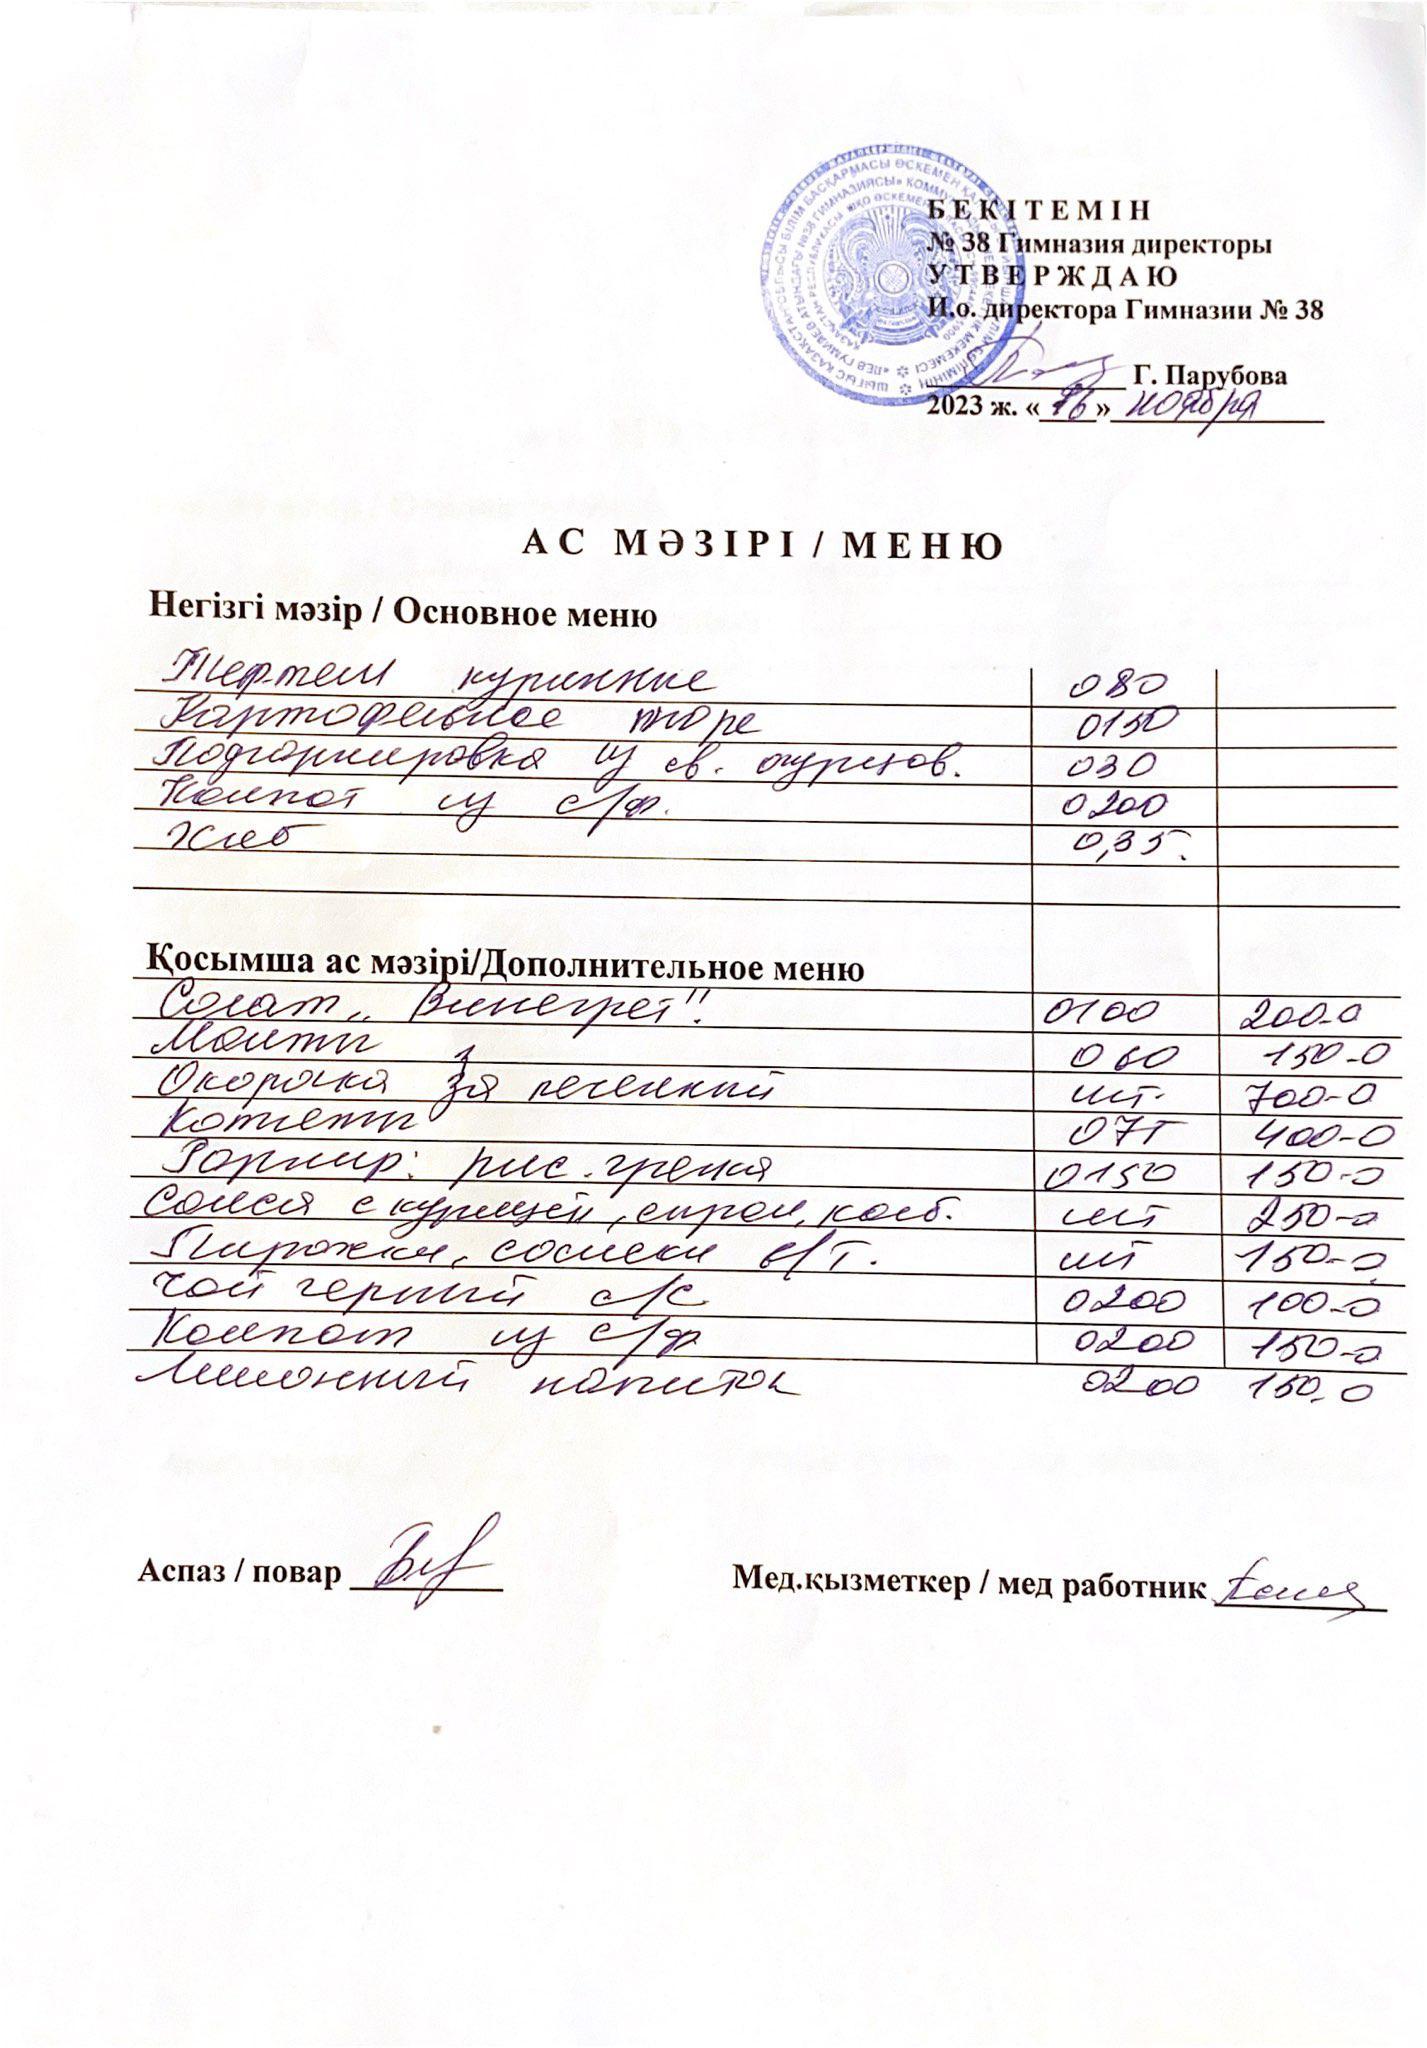 БЕКІТЕМІН
№ 38 Гимназия директоры
УТВЕРЖДАЮ
И.о. директора Гимназии № 38
Г. Парубова
2023 ж. «16» ноября
АС МӘЗІРІ / МЕНЮ
Негізгі мәзір / Основное меню
Тефтели куринные 080
Картофельное пюре 0150
Подгарнировка из св. огурцов. 030
Компот из с/ф. 0200
Хлеб 0,35.
Қосымша ас мәзірі/Дополнительное меню
Салат „Винегрет". 0100 200-0
Манты 060 150-0
Окорочка запеченный шт. 700-0
Котлеты 07T 400-0
Гарнир: рис. гречка 0150 150-0
Самса с курицей, сыром, колб. шт 250-0
Пирожки, сосиски в/т. шт 150-0
Чай черный с/с 0200 100-0
Компот из с/ф 0200 150-0
Лимонный напиток 0200 150.0
Аспаз / повар
Мед.қызметкер / мед работник